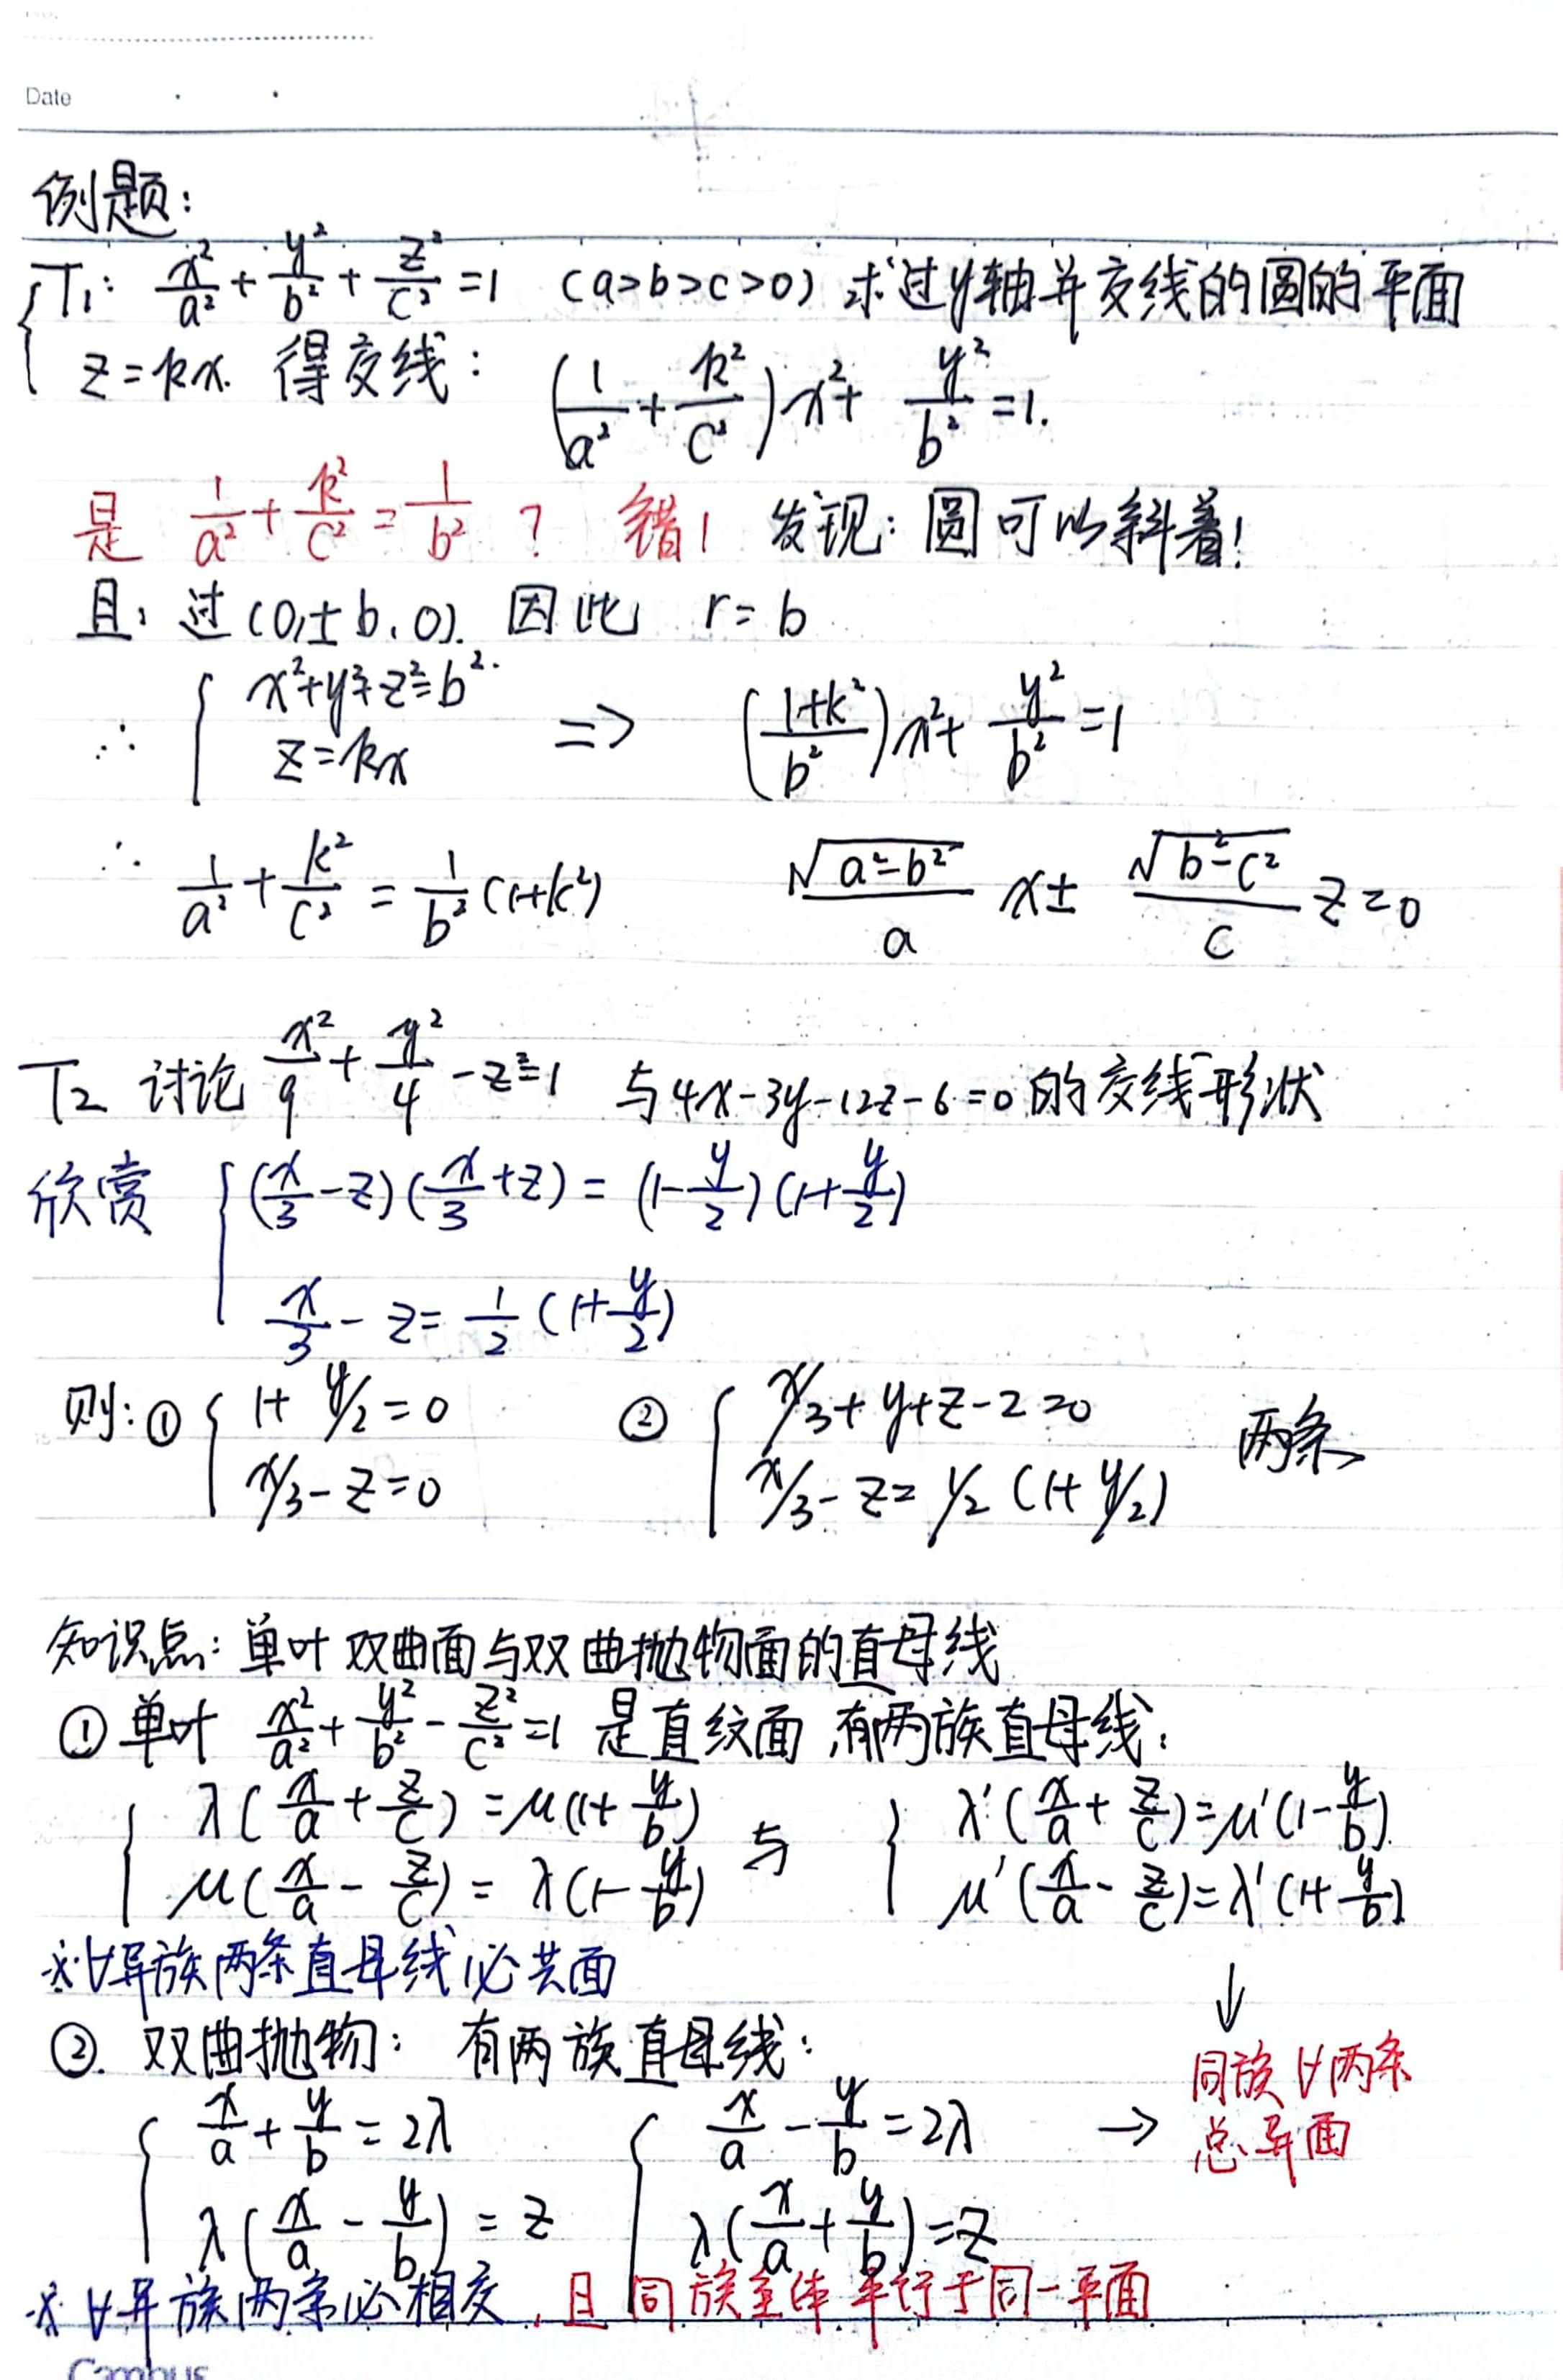 Date
例题:
T₁: x²/a² + y²/b² + z²/c² = 1 (a>b>c>0) 求过y轴并交线的圆的平面
z=kx. 得交线: (1/a² + k²/c²)x² + y²/b² = 1.
是 1/a² + k²/c² = 1/b² ? 错! 发现: 圆可以斜着!
且: 过(0,±b,0). 因此 r=b
∴ { x²+y²+z²=b². z=kx => ((1+k²)/b²)x² + y²/b² = 1
∴ 1/a² + k²/c² = 1/b² (1+k²) √(a²-b²)/a x ± √(b²-c²)/c z = 0
T₂ 讨论 x²/9 + y²/4 - z² = 1 与 4x-3y-12z-6=0 的交线形状
欣赏 { (x/3 - z)(x/3 + z) = (1 - y/2)(1 + y/2)
x/3 - z = 1/2 (1 + y/2)
则: ① { 1 + y/2 = 0 ② { x/3 + y + z - 2 = 0 两条
x/3 - z = 0 x/3 - z = 1/2 (1 + y/2)
知识点: 单叶双曲面与双曲抛物面的直母线
① 单叶 x²/a² + y²/b² - z²/c² = 1 是直纹面, 有两族直母线:
{ λ(x/a + z/c) = μ(1 + y/b) 与 { λ'(x/a + z/c) = μ'(1 - y/b).
μ(x/a - z/c) = λ(1 - y/b) μ'(x/a - z/c) = λ'(1 + y/b)
※∀异族两条直母线必共面 ↓
②. 双曲抛物: 有两族直母线:
{ x/a + y/b = 2λ { x/a - y/b = 2λ → 同族∀两条
总异面
λ(x/a - y/b) = z λ(x/a + y/b) = z
※∀异族两条必相交, 且同族全体平行于同一平面
Campus